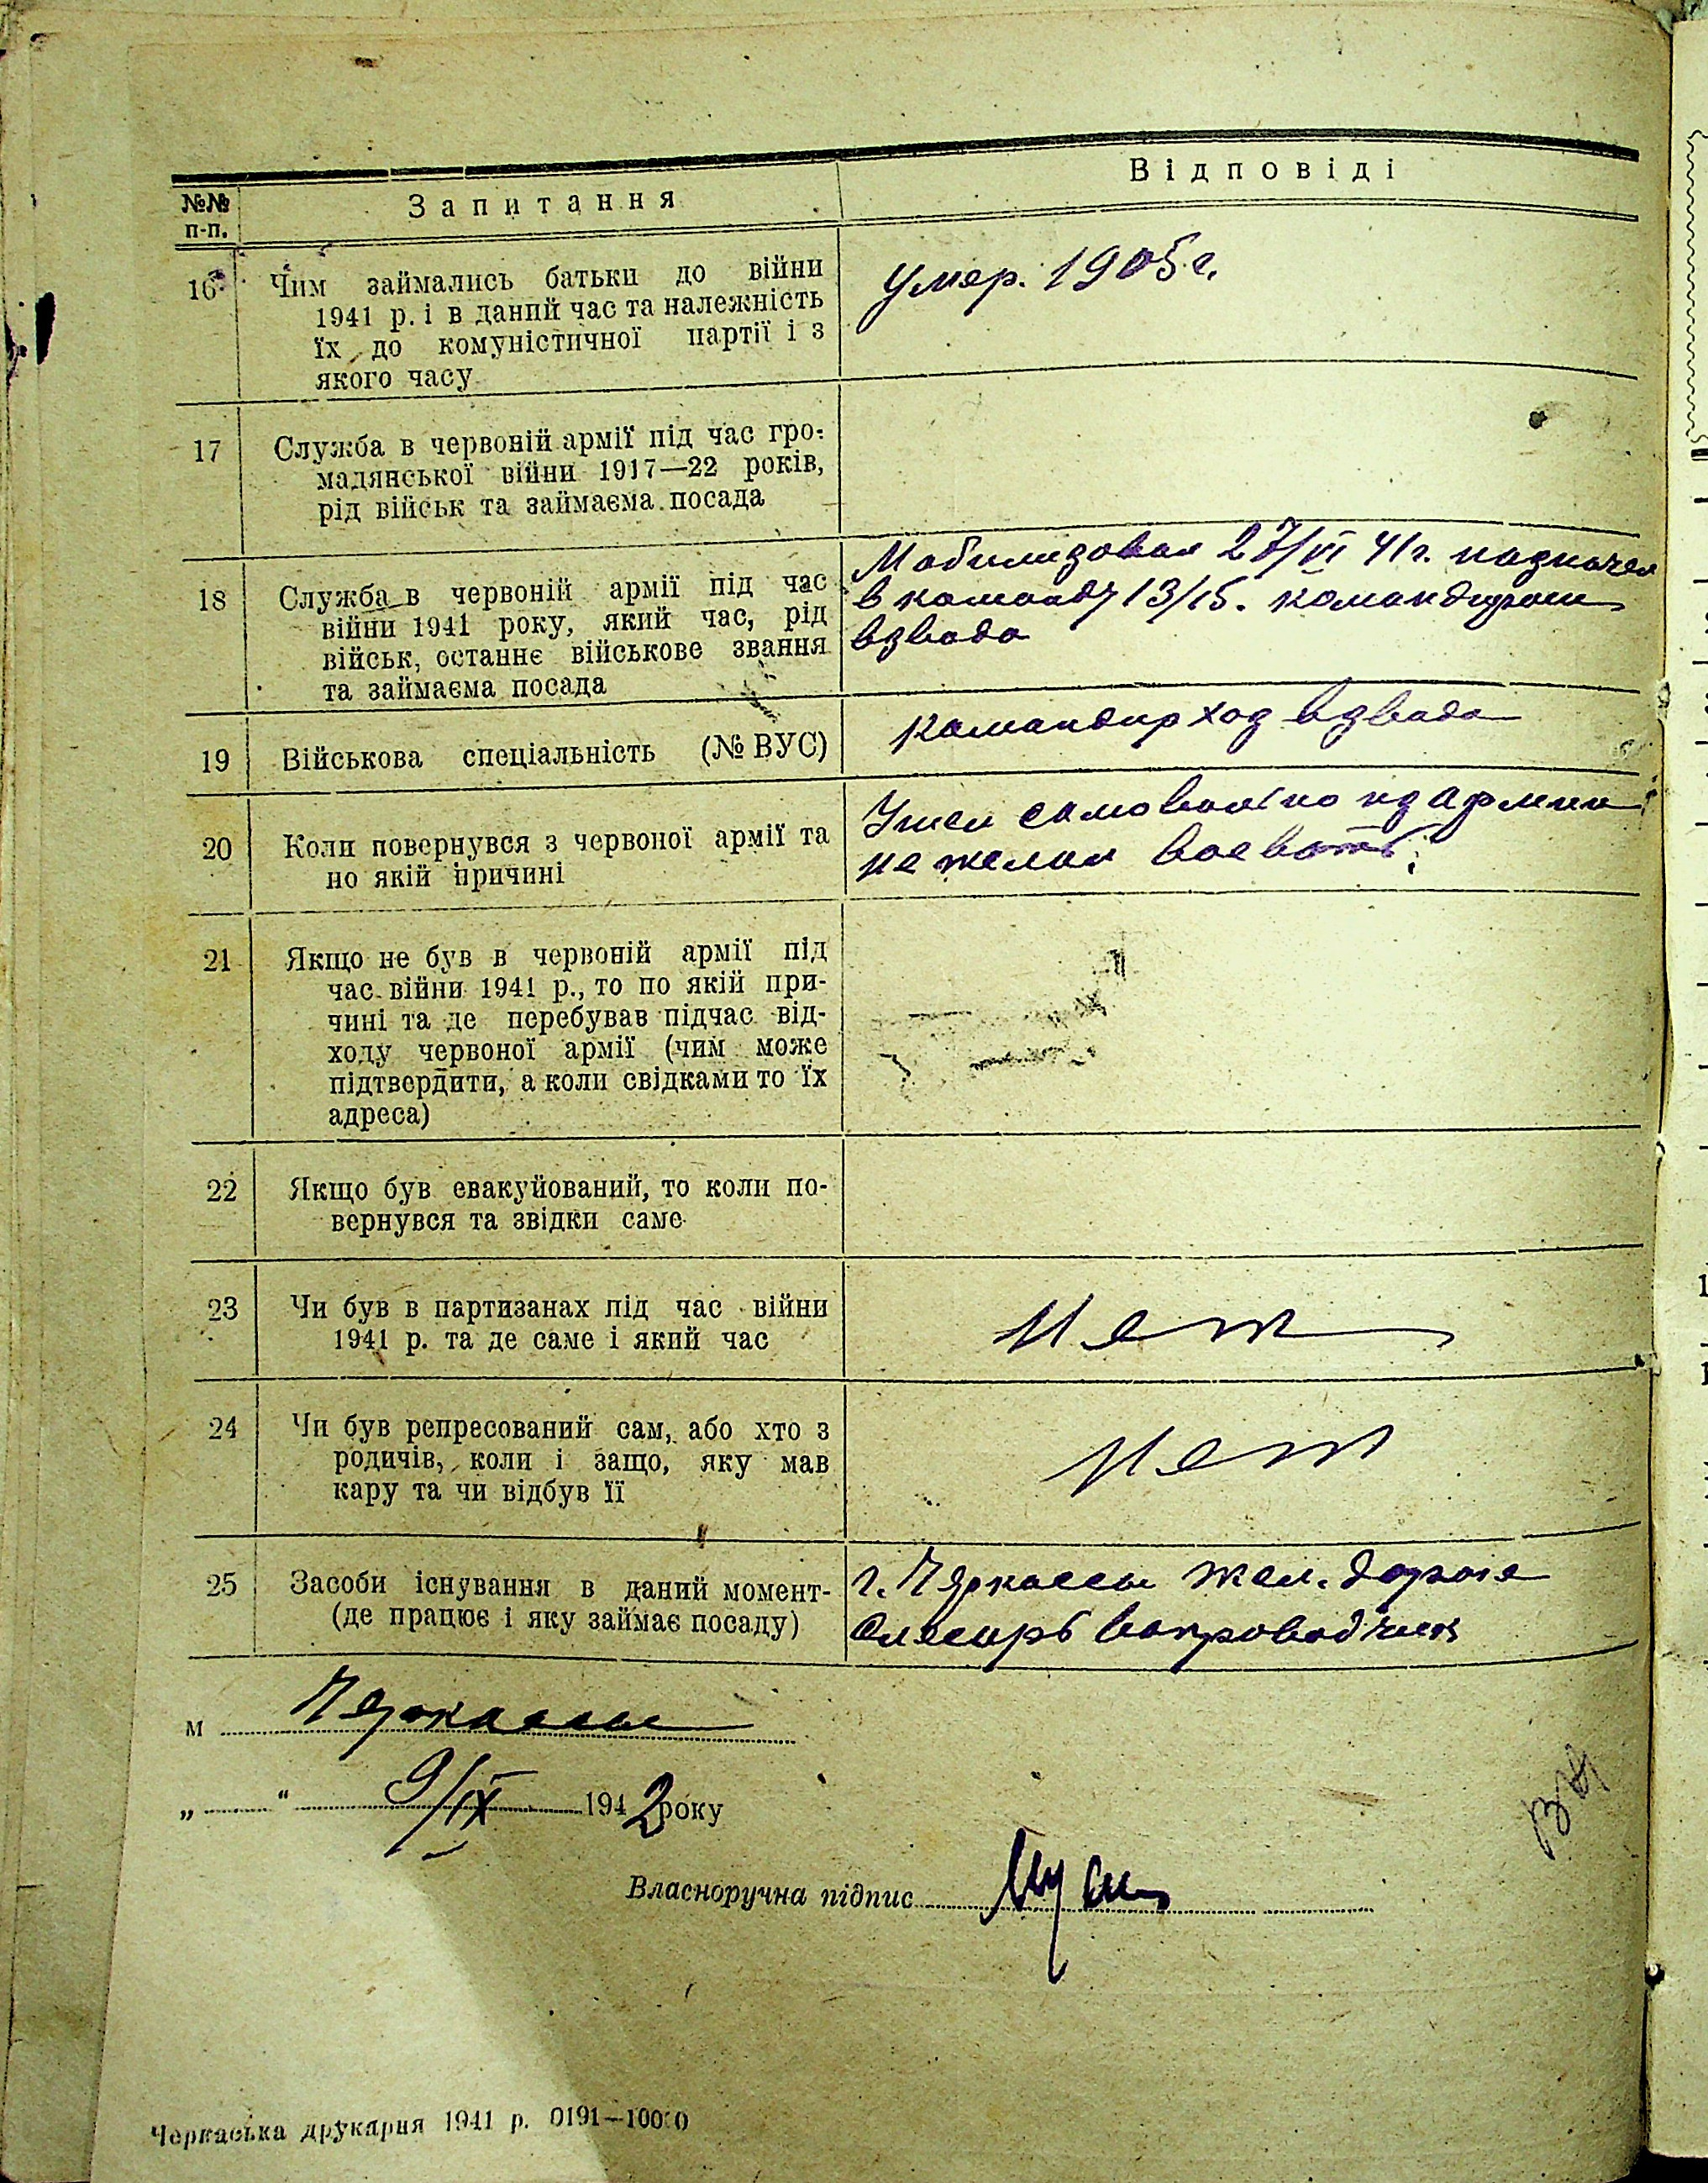 №№ п-п.
Запитання
Відповіді
16
Чим займались батьки до війни
1941 р. і в даний час та належність
їх до комуністичної партії і з
якого часу
умер. 1905 г.
17
Служба в червоній армії під час гро-
мадянської війни 1917—22 років,
рід військ та займаєма посада
18
Служба в червоній армії під час
війни 1941 року, який час, рід
військ, останнє військове звання
та займаєма посада
Мобилизован 27/VI 41 г. назначен
в команду 13/15. командиром
взвода
19
Військова спеціальність (№ ВУС)
командир хоз взвода
20
Коли повернувся з червоної армії та
по якій причині
Ушел самовольно из армии
не желал воевать.
21
Якщо не був в червоній армії під
час війни 1941 р., то по якій при-
чині та де перебував підчас від-
ходу червоної армії (чим може
підтвердити, а коли свідками то їх
адреса)
22
Якщо був евакуйований, то коли по-
вернувся та звідки саме
23
Чи був в партизанах під час війни
1941 р. та де саме і який час
нет
24
Чи був репресований сам, або хто з
родичів, коли і защо, яку мав
кару та чи відбув її
нет
25
Засоби існування в даний момент-
(де працює і яку займає посаду)
г. Черкассы жел. дорога
Слесарь
м Черкассы
„ “ 9/IX 1942 року
Власноручна підпис
Черкаська друкарня 1941 р. 0191—10000